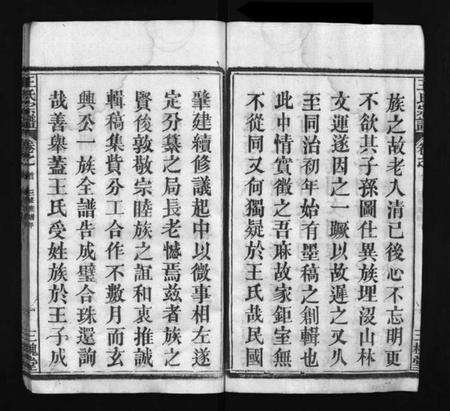 族之故老人清已後心不忘明更
不欲其子孫圖仕異族理沒山林
文運遂因之一蹶以故遲之又久
至同治初年始有墨稿之創輯也
此中情實徵之吾麻故家鉅室無
不從同又何獨疑於王氏哉民國
肇建續修議起中以微事相左遂
定分纂之局長老憾焉茲者族之
賢後敦敬宗睦族之誼和衷推誠
輯稿集貲分工合作不數月而玄
興公一族全譜告成璧合珠還詢
哉善舉蓋王氏受姓族於王子成
王氏宗譜
三槐堂